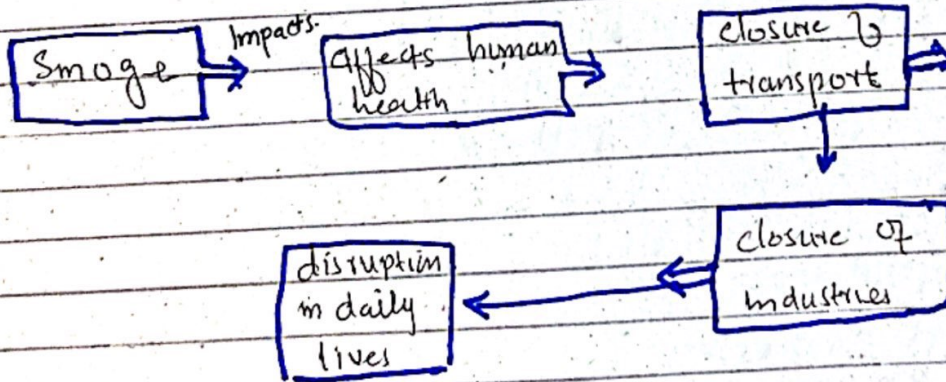 Smoge
Impacts.
affects human
health
closure of
transport
closure of
industries
disruption
in daily
lives